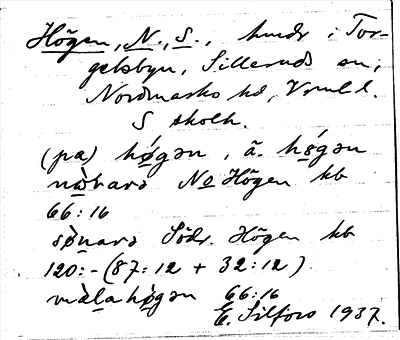 Högen, N., S., hmdr i Tor-
gelsbyn, Silleruds sn,
Nordmarks hd, Vrml l.
S skolh.
(pa) hǿgən, ä. hǿgən
nø̀rarə No Högen kb
66:16
sø̀narə Södr. Högen kb
120:- (87:12 + 32:12)
màlahøgən 66:16
E. Silfors 1937.